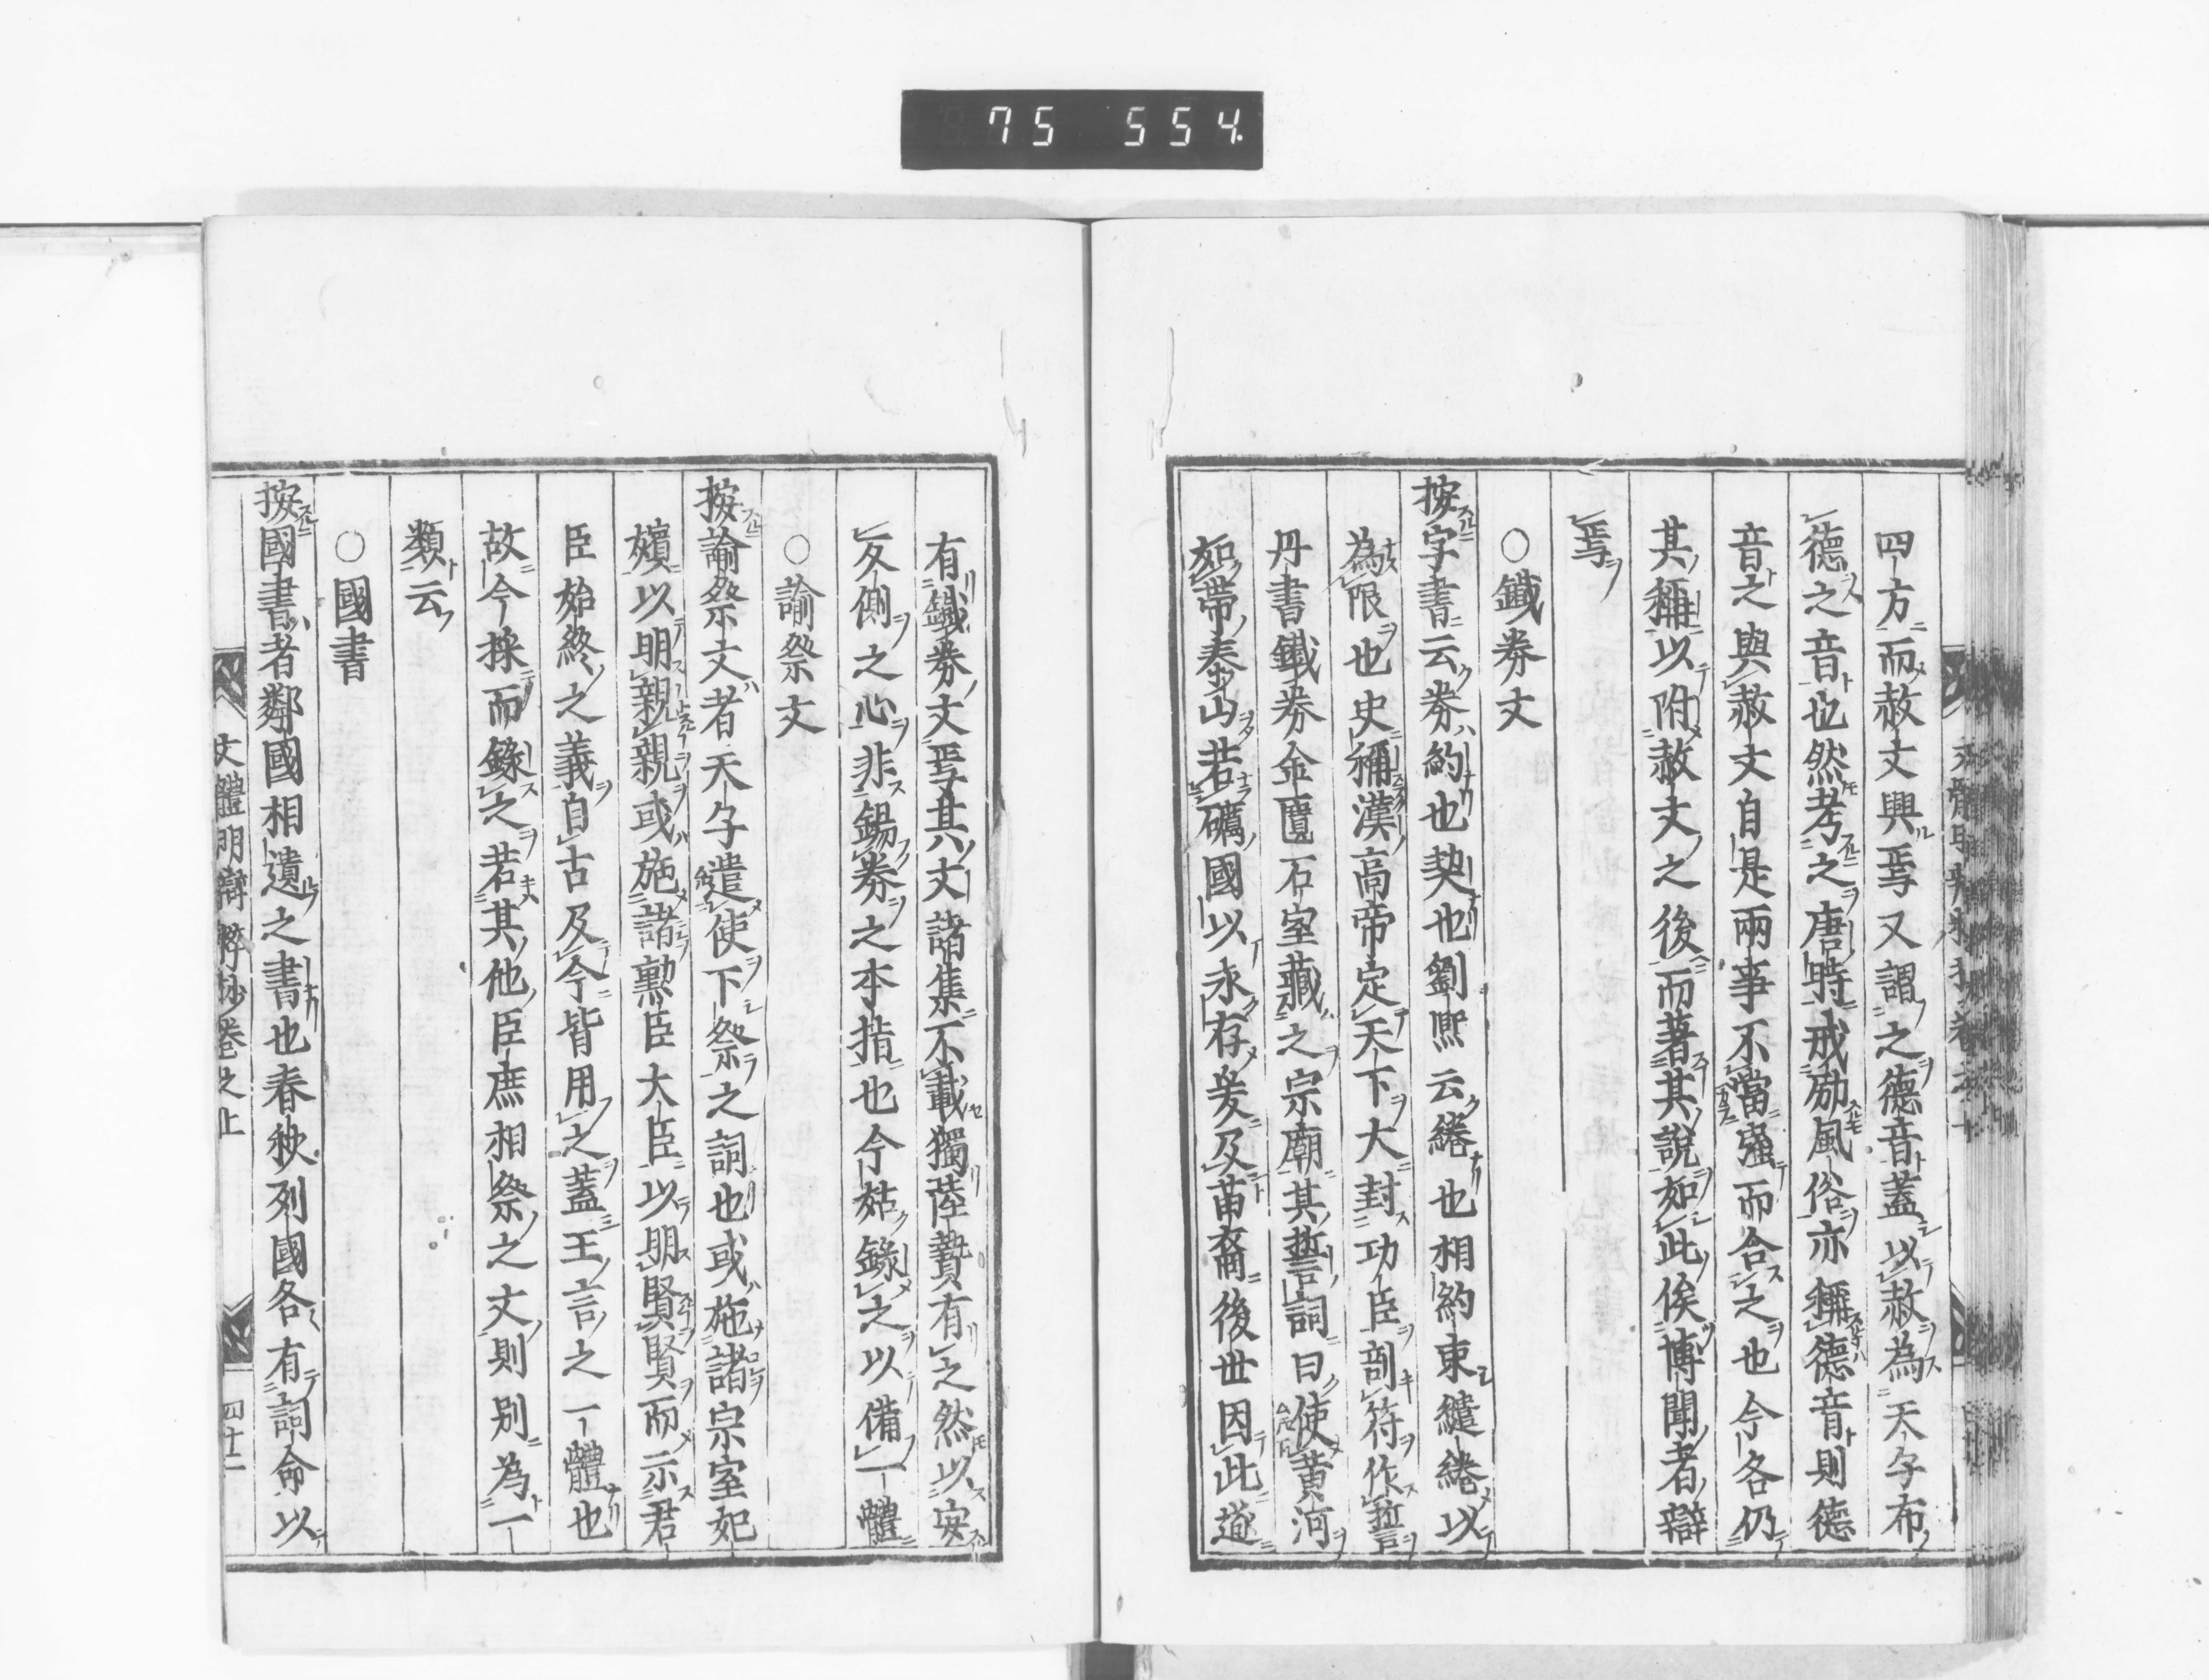 75 554.
四方而赦文興焉又謂之德音蓋以赦為天子布
德之音也然考之唐時戒勵風俗亦稱德音則德
音之與赦文自是兩事不當强而合之也今各仍
其稱以附赦文之後而著其說如此俟博聞者辯
焉
○鐵券文
按字書云券約也契也劉熙云綣也相約束繾綣以
為限也史稱漢高帝定天下大封功臣剖符作誓
丹書鐵券金匱石室藏之宗廟其誓詞曰使黃河
如帶泰山若礪國以永存爰及苗裔後世因此遂
有鐵券文焉其文諸集不載獨陸贄有之然以安
反側之心非錫券之本指也今姑錄之以備一體
○諭祭文
按諭祭文者天子遣使下祭之詞也或施諸宗室妃
嬪以明親親或施諸勲臣大臣以明賢賢而示君
臣始終之義自古及今皆用之蓋王言之一體也
故今採而錄之若其他臣庶相祭之文則別為一
類云
○國書
按國書者鄰國相遺之書也春秋列國各有詞命以
文體明辯粹抄卷之上
四十二